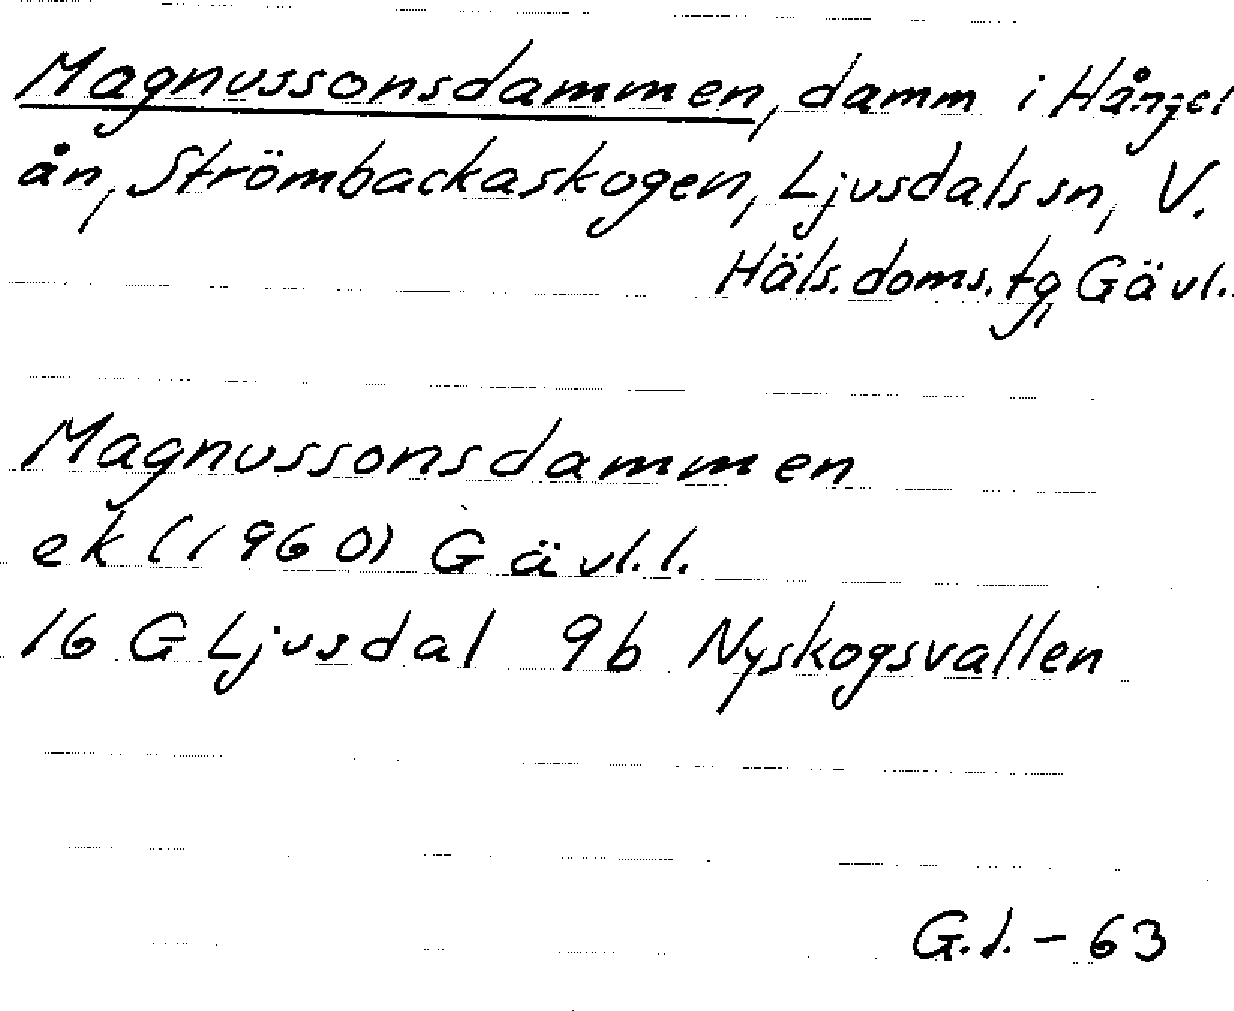 Magnussonsdammen, damm i Hångel
ån, Strömbackaskogen, Ljusdals sn, V.
Häls. doms. tg, Gävl.
Magnussonsdammen
ek (1960) Gävl. l.
16 G Ljusdal 9b Nyskogsvallen
G. l. - 63